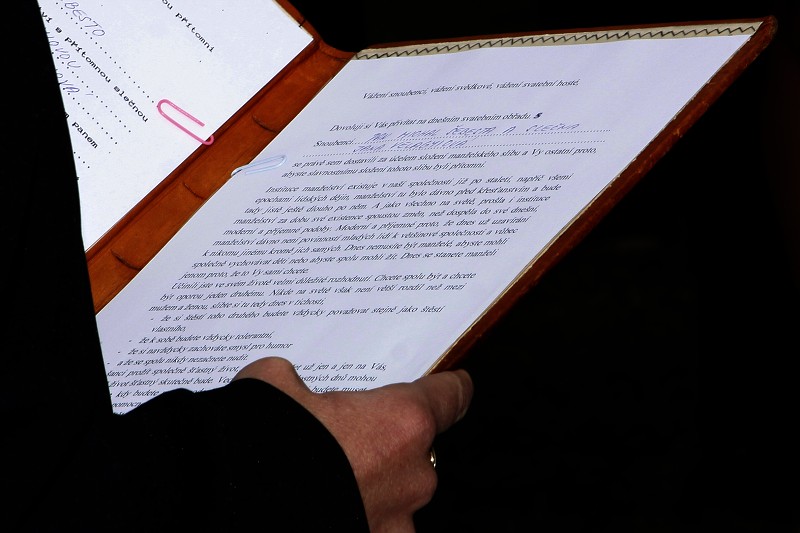 BESTO
ou přítomni
ví s přítomnou slečnou
panem
Vážení snoubenci, vážení svědkové, vážení svatební hosté,
Dovoluji si Vás přivítat na dnešním svatebním obřadu s
Snoubenci A SLEČNA
JANA
se právě sem dostavili za účelem složení manželského slibu a Vy ostatní proto,
abyste slavnostnímu složení tohoto slibu byli přítomni.
Instituce manželství existuje v naší společnosti již po staletí, napříč všemi
epochami lidských dějin, manželství tu bylo dávno před křesťanstvím a bude
tady jistě ještě dlouho po něm. A jako všechno na světě, prošla i instituce
manželství za dobu své existence spoustou změn, než dospěla do své dnešní,
moderní a příjemné podoby. Moderní a příjemné proto, že dnes už uzavírání
manželství dávno není povinností mladých lidí k většinové společnosti a vůbec
k nikomu jinému kromě jich samých. Dnes nemusíte být manželé, abyste mohli
společně vychovávat děti nebo abyste spolu mohli žít. Dnes se stanete manželi
jenom proto, že to Vy sami chcete.
Učinili jste ve svém životě velmi důležité rozhodnutí. Chcete spolu být a chcete
být oporou jeden druhému. Nikde na světě však není větší rozdíl než mezi
mužem a ženou, slibte si tu tedy dnes v tichosti,
- že si štěstí toho druhého budete vždycky považovat stejně jako štěstí
vlastního,
- že k sobě budete vždycky tolerantní,
- že si navždycky zachováte smysl pro humor
- a že se spolu nikdy nezačnete nudit.
prožít společně šťastný život, už jen a jen na Vás,
život šťastný skutečně bude. šťastných dnů mohou
kdy budete budete muset